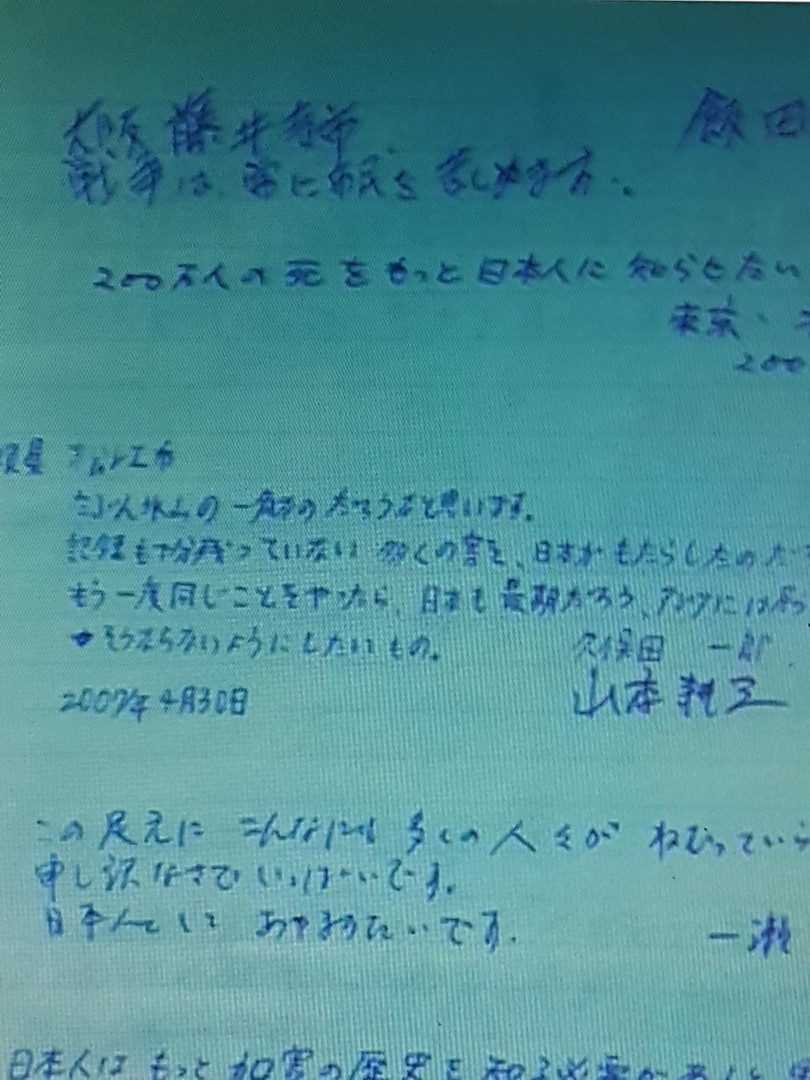 大阪 藤井
飯田
戦争は、常に市民を苦しめる方。
200万人の死をもっと日本人に知らせたい
東京・
200
氷山の一角なのだろうなと思います。
記録も十分残っていない 多くの害を、日本がもたらしたのだ
もう一度同じことをやったら、日本も最期だろう、アジアには
そうならないようにしたいもの。
久保田 一郎
2007年4月30日
山本
この足元に こんなにも 多くの人々が ねむっている
申し訳なさで いっぱいです。
日本人として あやまりたいです。
一瀬
日本人は もっと 加害の歴史を 知る必要があると